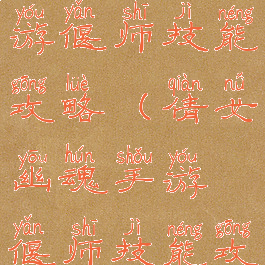 yóu yǎn shī jì néng
游偃师技能
gōng lüè qiàn nǚ
攻略(倩女
yōu hún shǒu yóu
幽魂手游
yǎn shī jì néng gōng
偃师技能攻